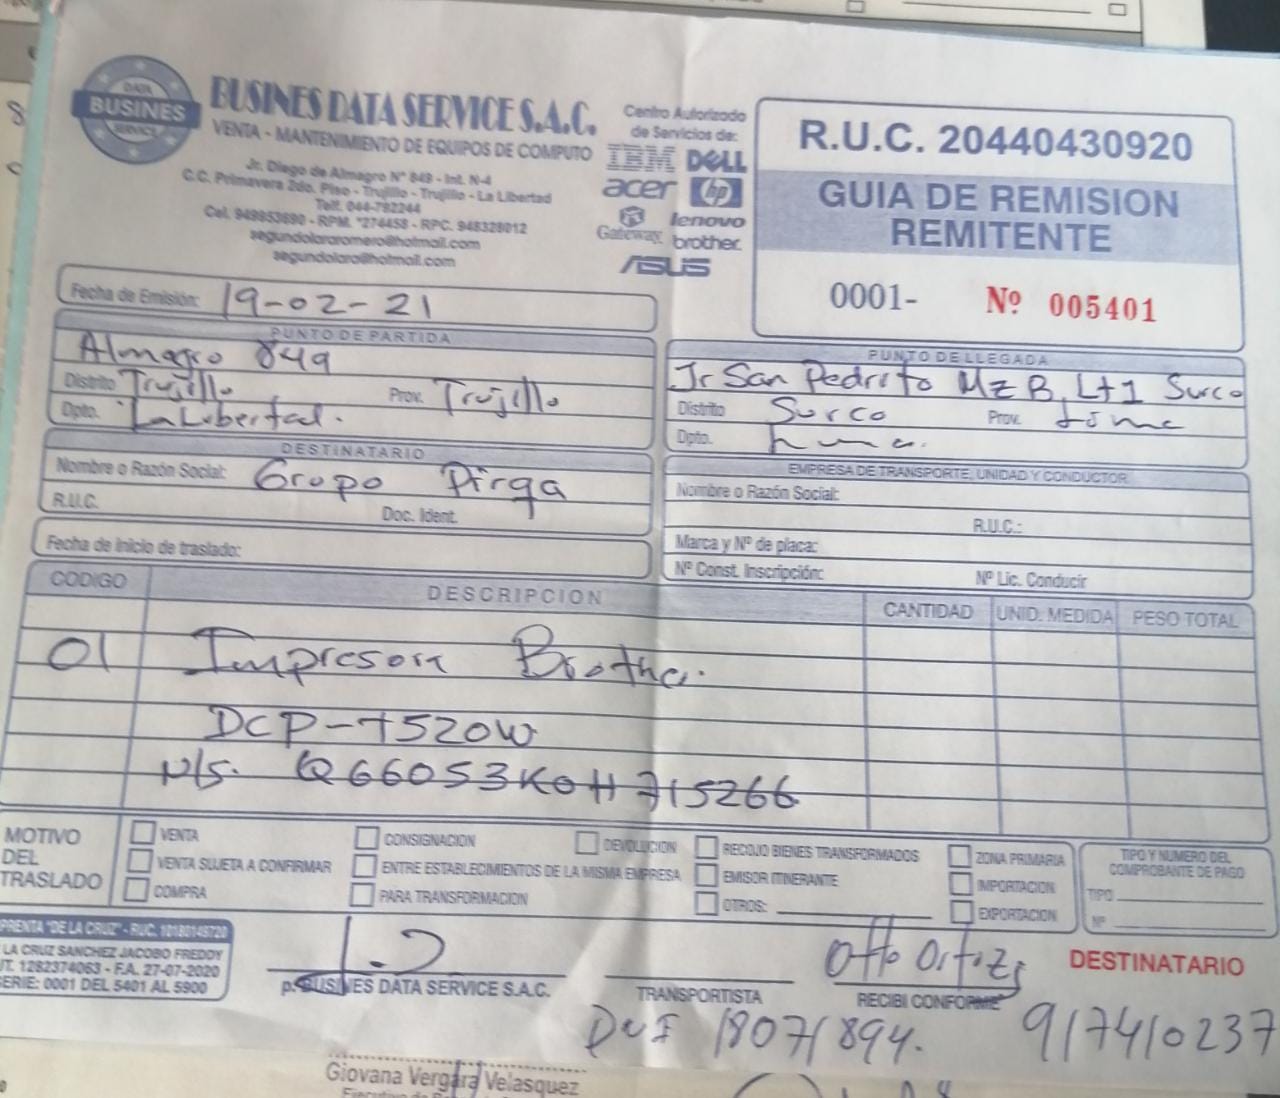 DATA
BUSINES
SERVICE
BUSINES DATA SERVICE S.A.C.
VENTA - MANTENIMIENTO DE EQUIPOS DE COMPUTO
Jr. Diego de Almagro Nº 849 - Int. N-4
C.C. Primavera 2do. Piso - Trujillo - Trujillo - La Libertad
Telf. 044-782244
Cel. 949953690 - RPM. *274458 - RPC. 948328012
segundolararomero@hotmail.com
segundolara@hotmail.com
Centro Autorizado
de Servicios de:
IBM DELL
acer hp
Gateway lenovo
brother.
ASUS
R.U.C. 20440430920
GUIA DE REMISION
REMITENTE
0001- Nº 005401
Fecha de Emisión: 19-02-21
PUNTO DE PARTIDA
Almagro 849
Distrito Trujillo Prov. Trujillo
Dpto. La Libertad.
PUNTO DE LLEGADA
Jr San Pedrito Mz B, Lt 1 Surco
Distrito Surco Prov. Lima
Dpto. Lima.
DESTINATARIO
Nombre o Razón Social: Grupo Pirqa
R.U.C. Doc. Ident.
EMPRESA DE TRANSPORTE, UNIDAD Y CONDUCTOR
Nombre o Razón Social:
R.U.C.:
Marca y Nº de placa:
Nº Const. Inscripción: Nº Lic. Conducir
Fecha de Inicio de traslado:
CODIGO DESCRIPCION CANTIDAD UNID. MEDIDA PESO TOTAL
01 Impresora Brother.
DCP-T520W
N/S. Q66053K0H715266
MOTIVO
DEL
TRASLADO
VENTA
VENTA SUJETA A CONFIRMAR
COMPRA
CONSIGNACION
ENTRE ESTABLECIMIENTOS DE LA MISMA EMPRESA
PARA TRANSFORMACION
DEVOLUCION
RECOJO BIENES TRANSFORMADOS
EMISOR ITINERANTE
OTROS:
ZONA PRIMARIA
IMPORTACION
EXPORTACION
TIPO Y NUMERO DEL
COMPROBANTE DE PAGO
TIPO
Nº
PRENTA "DE LA CRUZ" - RUC. 10180149720
LA CRUZ SANCHEZ JACOBO FREDDY
UT. 1282374063 - F.A. 27-07-2020
SERIE: 0001 DEL 5401 AL 5900
p. BUSINES DATA SERVICE S.A.C.
TRANSPORTISTA
Otto Ortiz
RECIBI CONFORME
DESTINATARIO
DNI 18071894.
917410237
Giovana Vergara Velasquez